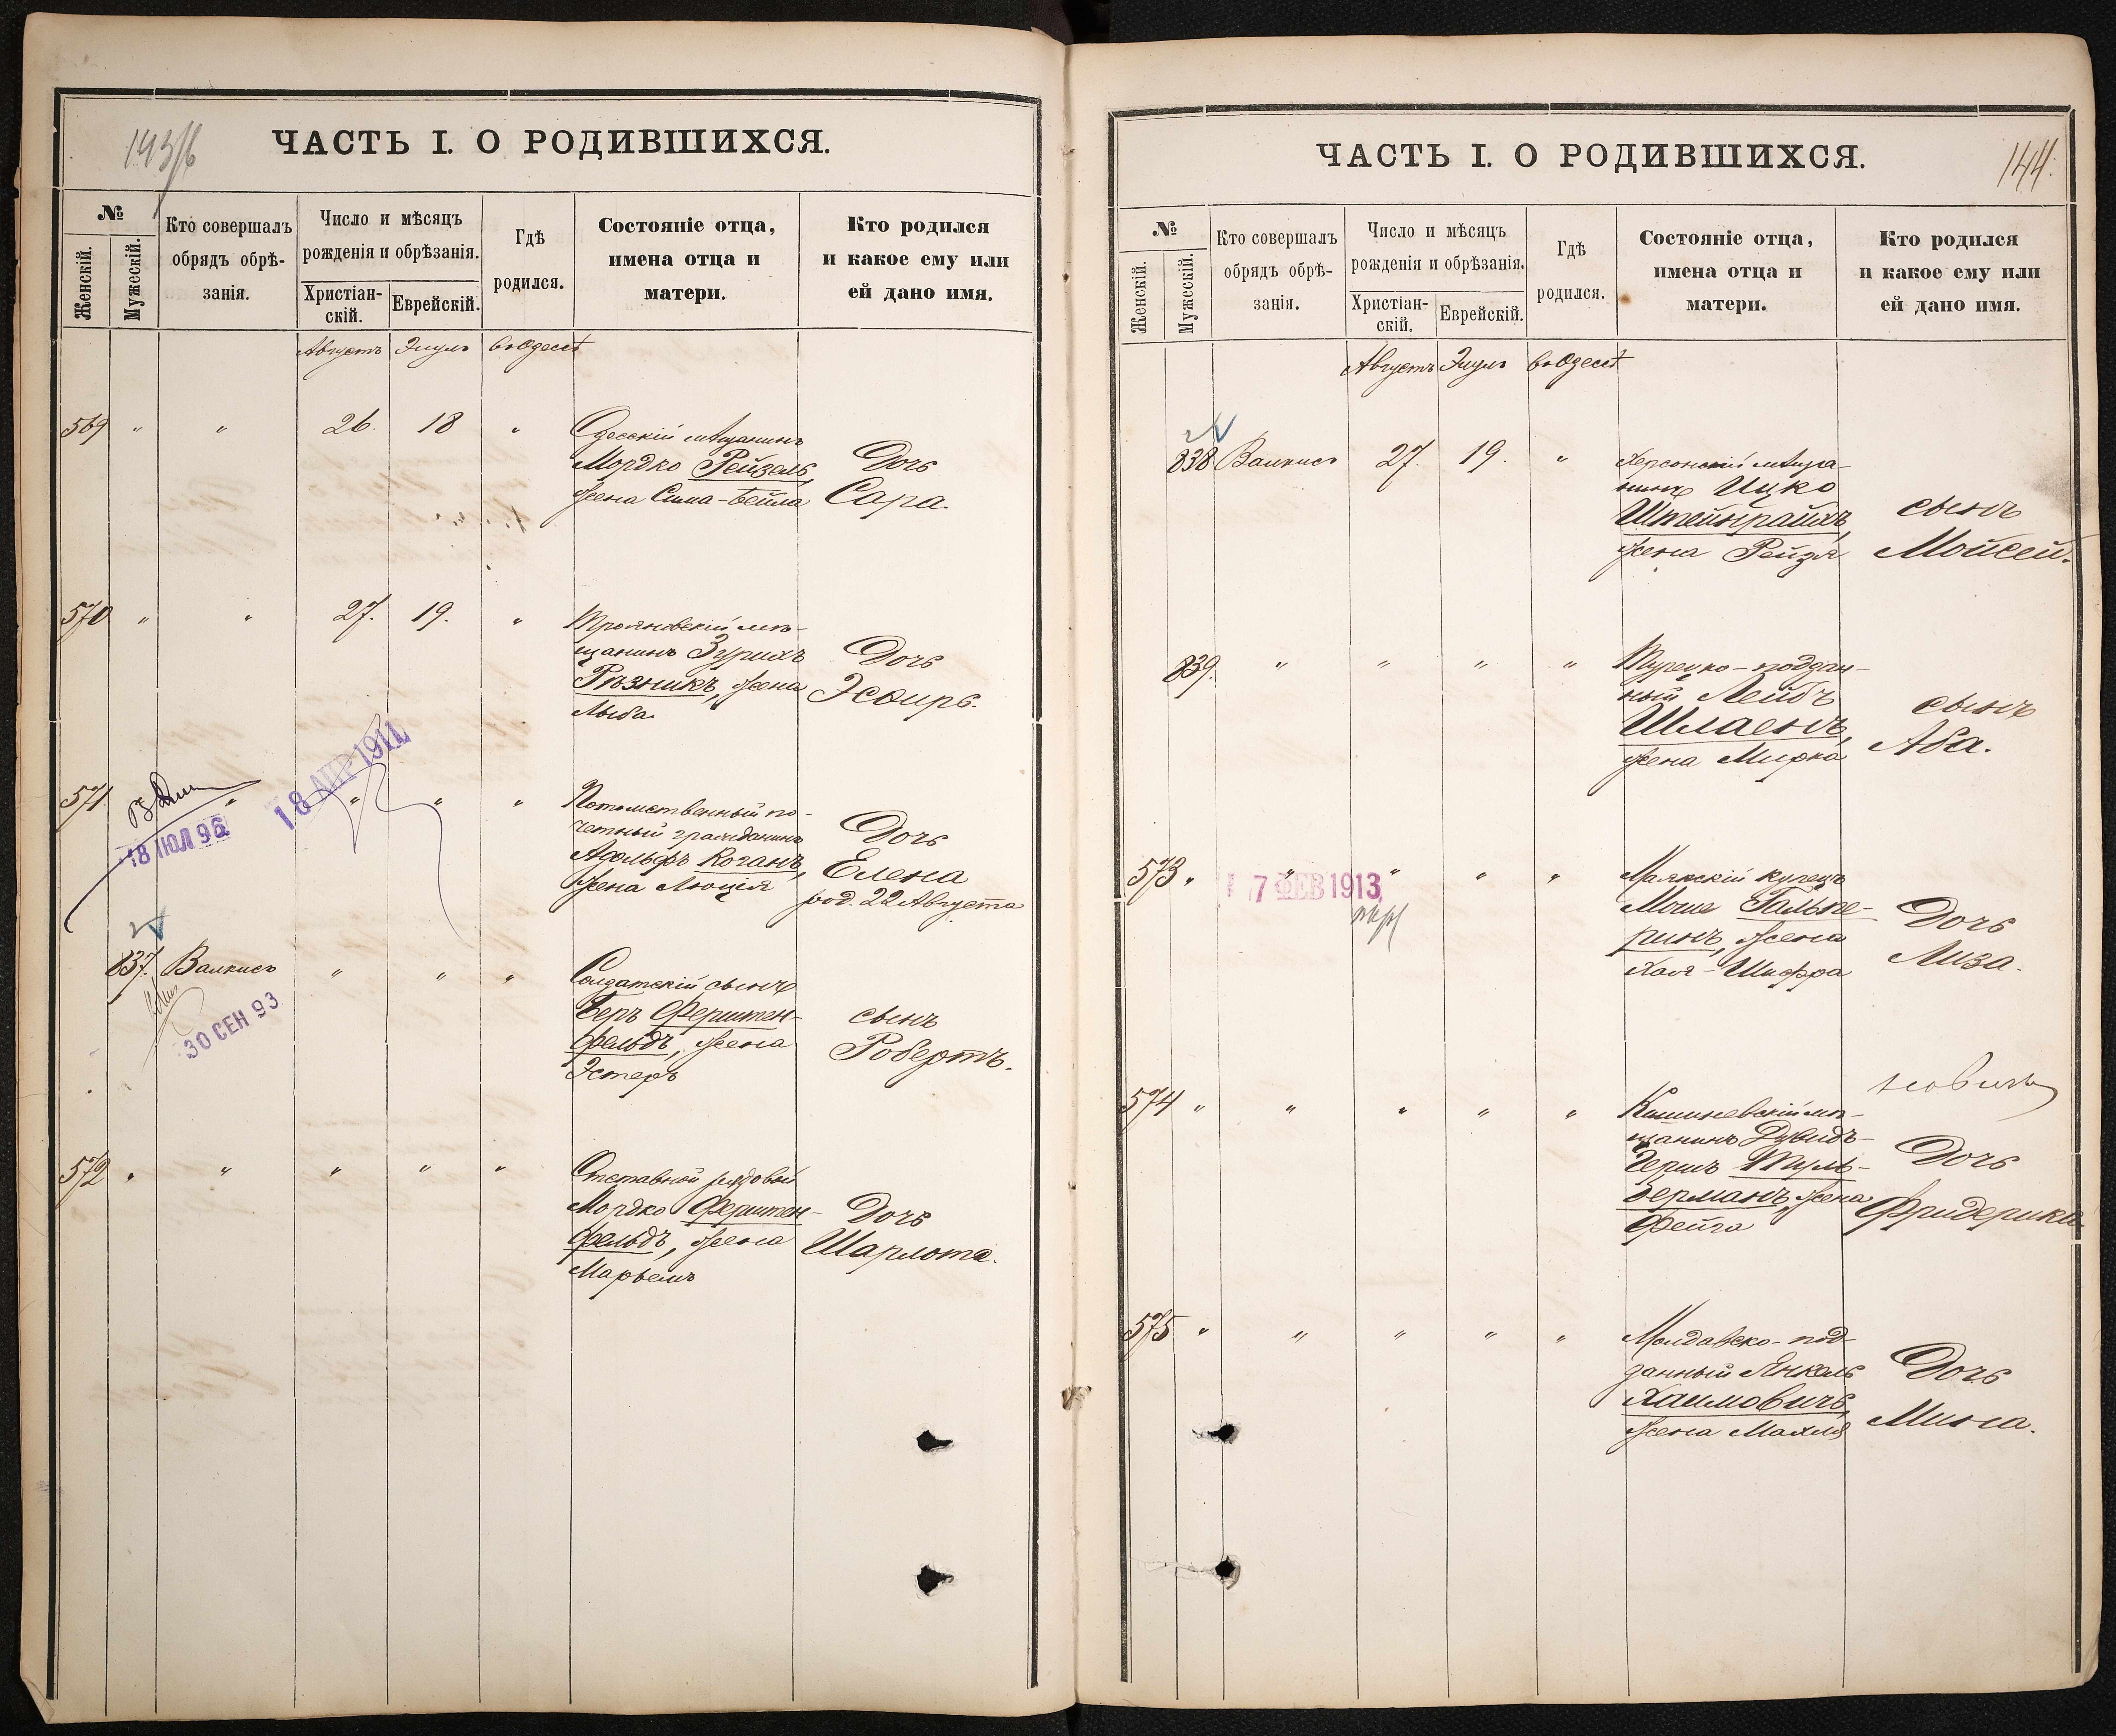 ЧАСТЬ I. О РОДИВШИХСЯ.
№
Женскій.
Мужескій.
Кто совершалъ
обрядъ обрѣ-
занія.
Число и мѣсяцъ
рожденія и обрѣзанія.
Христіан-
скій.
Еврейскій.
Гдѣ
родился.
Состояніе отца,
имена отца и
матери.
Кто родился
и какое ему или
ей дано имя.
Августъ Элулъ въ Одессѣ
569 " " 26. 18 "
Одесскій мѣщанинъ
Мордко Рейзель,
жена Сима-Бейла
Дочь
Сара.
570 " " 27. 19. "
Трояновскій мѣ-
щанинъ Зурихъ
Рѣзникъ, жена
Дочь
Эсѳирь.
18 АПР 1911
571 " " " "
18 ІЮЛ 96
Потомственный по-
четный гражданинъ
Адольфъ Коганъ,
жена Люція
Дочь
Елена
род. 22 Августа
837. Валкисъ " " "
30 СЕН 93
Солдатскій сынъ
Беръ Ферштен-
фельдъ, жена
Эстеръ
сынъ
Робертъ.
572 " " " " "
Отставной рядовой
Мордко Ферштен-
фельдъ, жена
Марьемъ
Дочь
Шарлота.
ЧАСТЬ I. О РОДИВШИХСЯ.
144.
№
Женскій.
Мужескій.
Кто совершалъ
обрядъ обрѣ-
занія.
Число и мѣсяцъ
рожденія и обрѣзанія.
Христіан-
скій.
Еврейскій.
Гдѣ
родился.
Состояніе отца,
имена отца и
матери.
Кто родился
и какое ему или
ей дано имя.
Августъ Элулъ въ Одессѣ
838 Валкисъ 27. 19. "
Херсонскій мѣща-
нинъ Ицко
Штейнграйхъ,
жена Рейзя
сынъ
Мойсей.
839. " " " "
Турецко-поддан-
ный Лейбъ
Шлаенъ,
жена Мирка
сынъ
Аба.
573 " " " " "
7 ФЕВ 1913
Маякскій купецъ
Моше Гальпе-
ринъ, жена
Хая-Шифра
Дочь
Лиза.
574 " " " " "
Кишиневскій мѣ-
щанинъ Дувидъ-
Гершъ Туль-
берманъ, жена
Фейга
Дочь
Фридерика
575 " " " " "
Молдавско-под-
данный Янкель
Хаимовичъ,
жена Махля
Дочь
Мина.